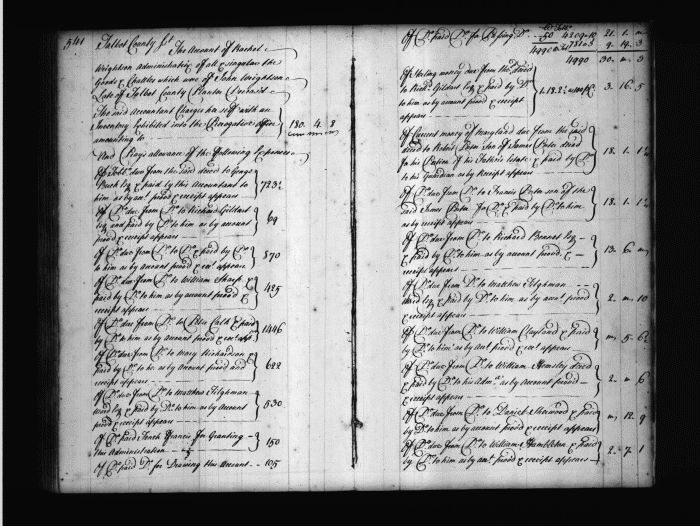 541
Talbot County ss.t
The Account of Rachel
Wrightson Administratrix of all & singular the
Goods & Chattles which were of John Wrightson
Late of Talbot County Planter Deceased
The said Accountant Charges her self with an
Inventory Exhibited into the Prerogative office
amounting to 180. 4. 8
And Prays allowance of the following Expences
Of Tob.o due from the said deced to George
paid by this Accountant to
him as by acc.t proved & receipt appears 723
Of D.o due from D.o to Richard Gildart
and paid by D.o to him as by account
proved & receipt appears 69
Of D.o due from D.o to D.o & paid by D.o
to him as by account proved & rec.t appears 870
Of D.o due from D.o to William Sharp &
paid by D.o to him as by account proved &
receipt appears 425
Of D.o due from D.o to & paid
by D.o to him as by account proved & rec.t app.s 1446
Of D.o due from D.o to Mary Richardson &
paid by D.o to her as by account proved and
receipt appears 622
Of D.o due from D.o to Matthew Tilghman
& paid by D.o to him as by Account
proved & receipt appears 530
Of D.o paid Tench Francis for Granting
this Administration 150
Of D.o paid D.o for Drawing this Account 105
Of D.o paid D.o for Passing D.o 50
4990 30. 3
Of Sterling money due from the deced
to Rich.d Gildart & paid by D.o
to him as by account proved & receipt
appears 3. 16. 5
Of Current money of Maryland due from the said
deced to Robert son of James deced
for his Portion of his Fathers Estate & paid by D.o
to his Guardian as by Receipt appears 18. 1. 1
Of D.o due from D.o to Francis son of the
said James for D.o & paid by D.o to him
as by receipt appears 18. 1. 1
Of D.o due from D.o to Richard Bennet
& paid by D.o to him as by account proved &
receipt appears 13. 6.
Of D.o due from D.o to Matthew Tilghman
& paid by D.o to him as by acc.t proved
& receipt appears 2. 10
Of D.o due from D.o to William Clayland & paid
by D.o to him as by acc.t proved & rec.t appears 5. 6
Of D.o due from D.o to William Hemsley deced
& paid by D.o to his Adm.x as by Account proved
& receipt appears 2. 6
Of D.o due from D.o to Daniel Sherwood & paid
by D.o to him as by account proved & receipt appears 12. 9
Of D.o due from D.o to William Hambleton & paid
by D.o to him as by acc.t proved & receipt appears 2. 7. 1